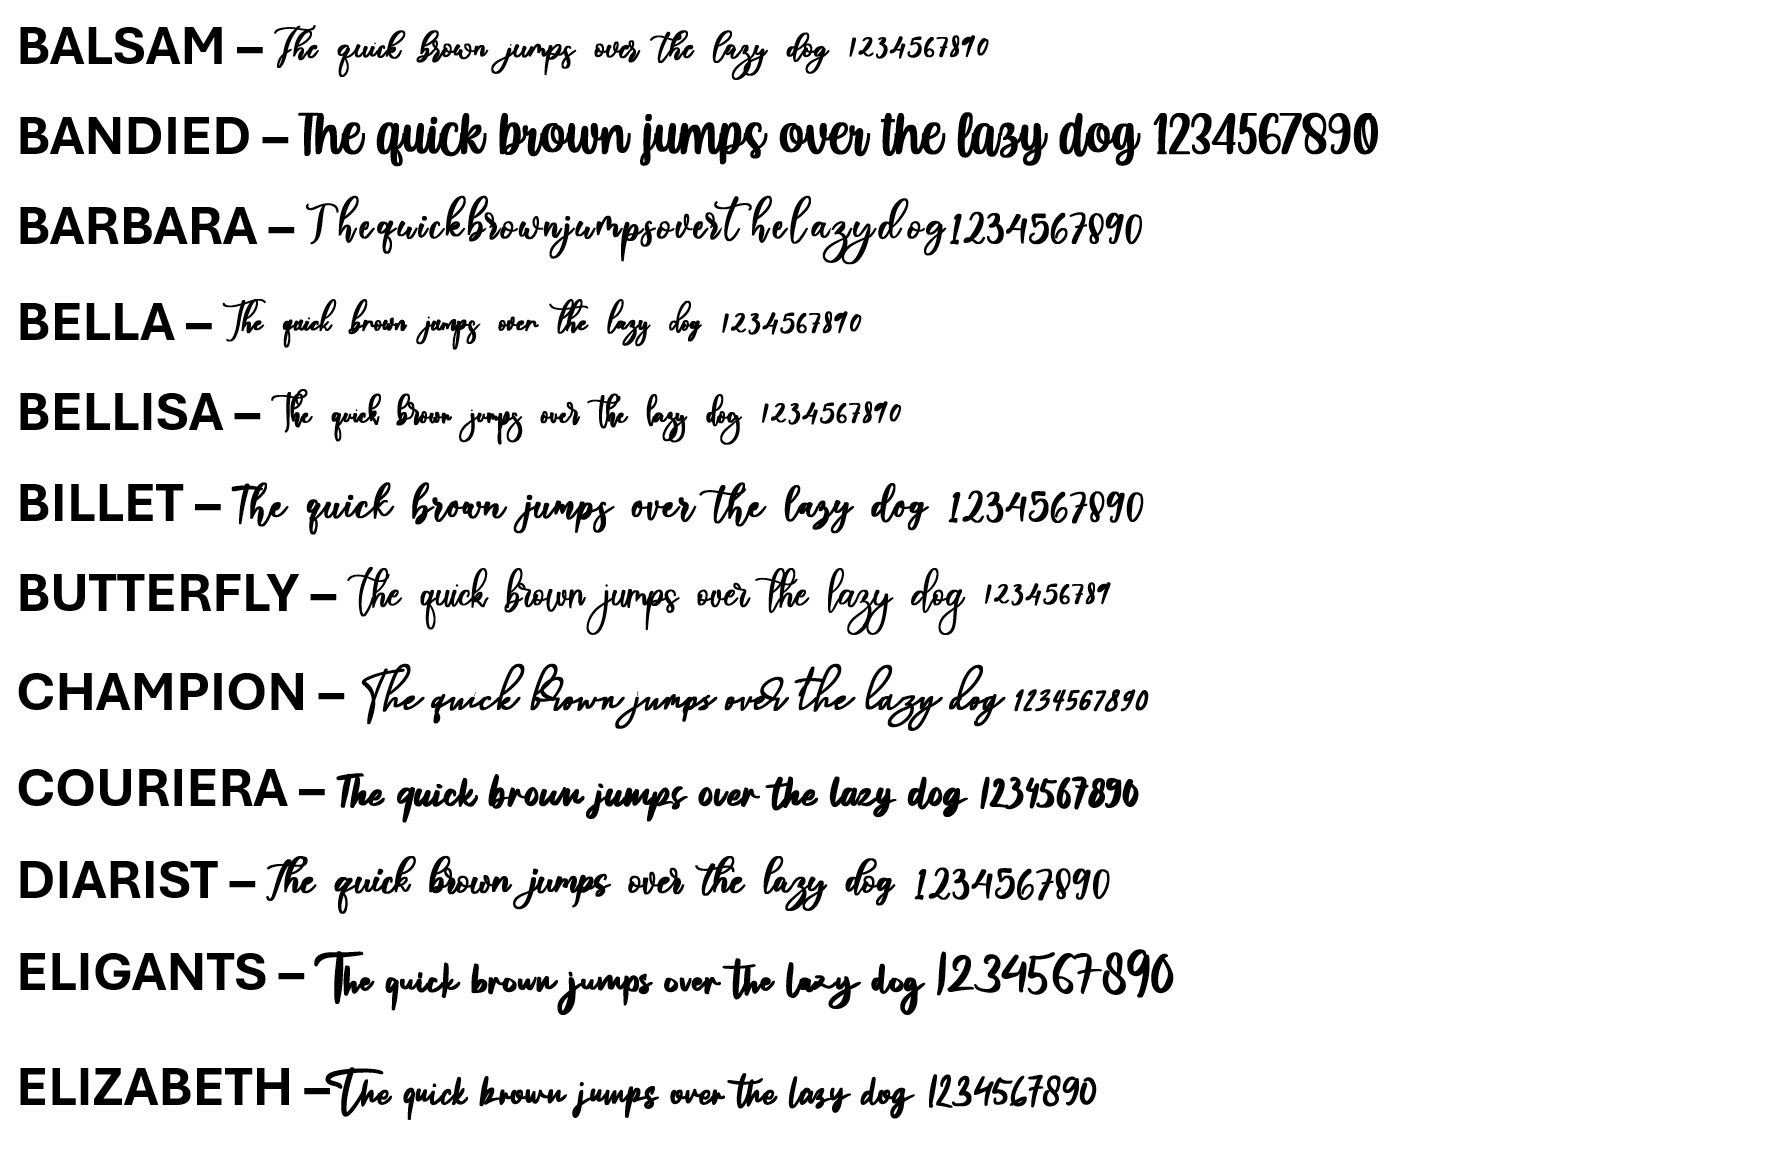 BALSAM – The quick brown jumps over the lazy dog 1234567890
BANDIED – The quick brown jumps over the lazy dog 1234567890
BARBARA – ThequickbrownjumpsoverthelazydOg1234567890
BELLA – The quick brown jumps over the lazy dog 1234567890
BELLISA – The quick brown jumps over the lazy dog 1234567890
BILLET – The quick brown jumps over the lazy dog 1234567890
BUTTERFLY – The quick brown jumps over the lazy dog 123456789
CHAMPION – The quick brown jumps over the lazy dog 1234567890
COURIERA – The quick brown jumps over the lazy dog 1234567890
DIARIST – The quick brown jumps over the lazy dog 1234567890
ELIGANTS – The quick brown jumps over the lazy dog 1234567890
ELIZABETH –The quick brown jumps over the lazy dog 1234567890